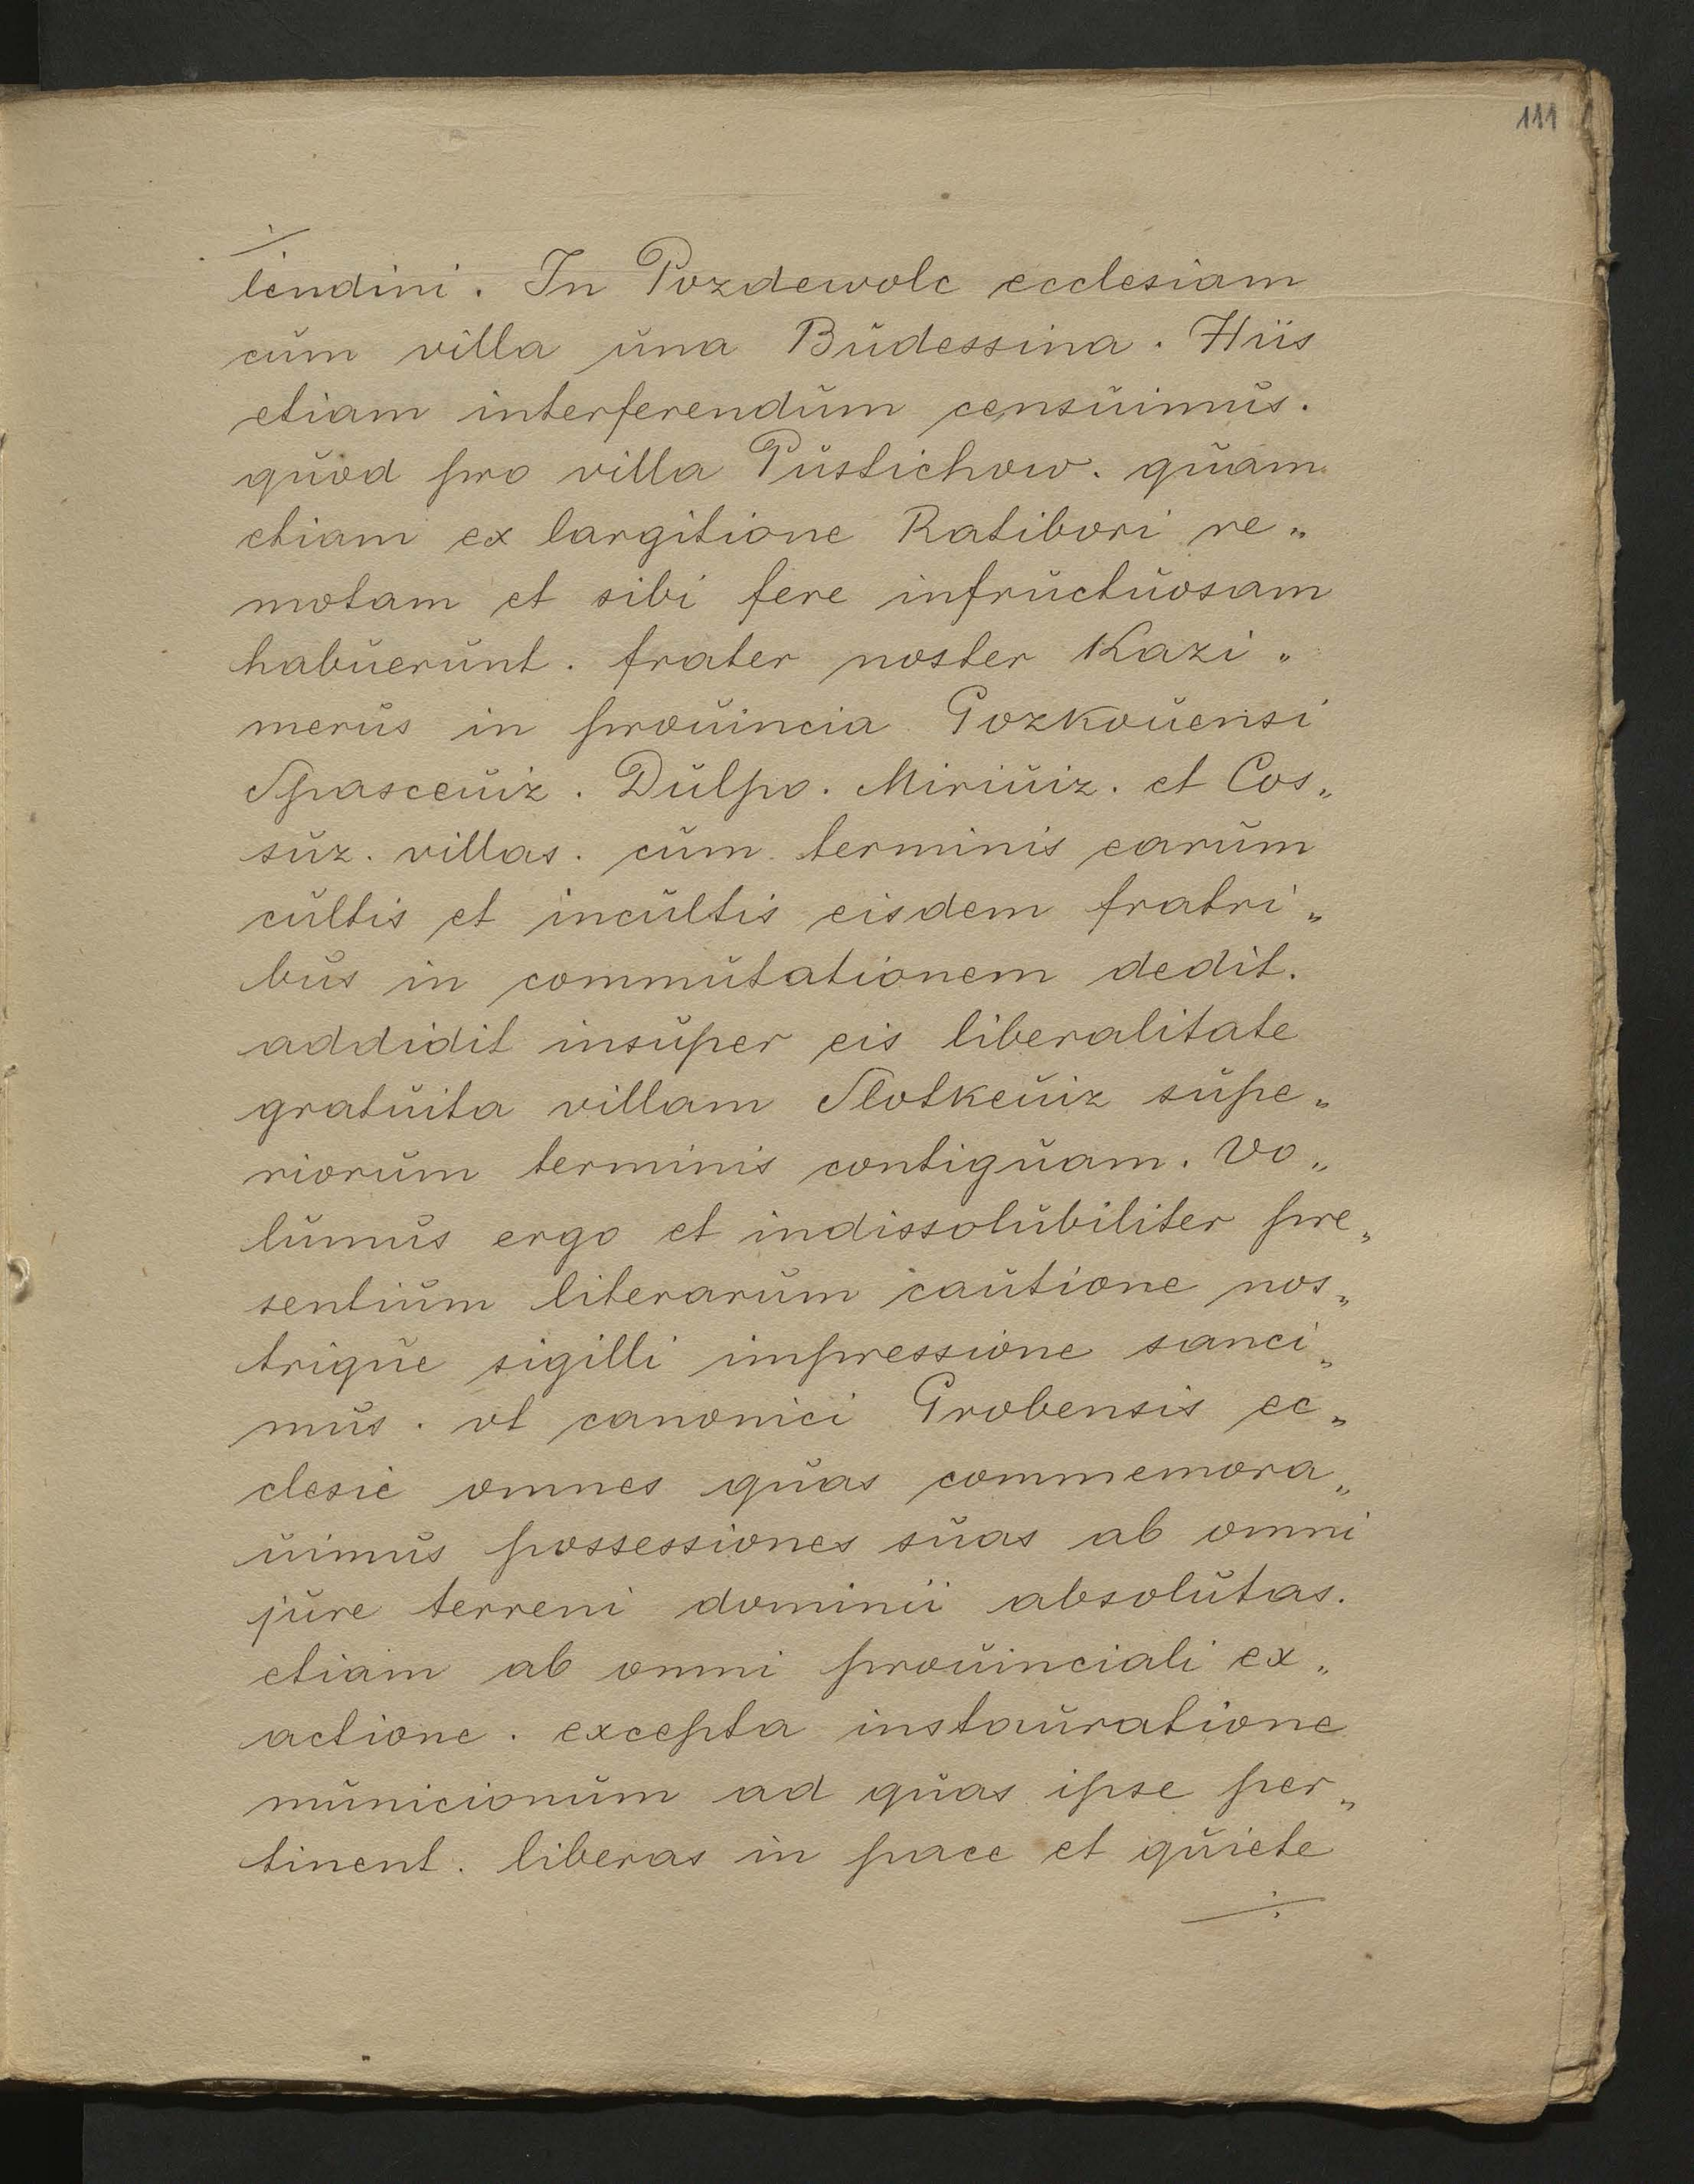 111
lendini. In Pozdewolc ecclesiam
cum villa una Budessina. Hiis
etiam interferendum censuimus.
quod pro villa Pustichow. quam
etiam ex largitione Ratibori re„
motam et sibi fere infructuosam
habuerunt. frater noster Kazi„
merus in prouincia Gozkouensi
Spasceuiz. Dulpo. Miriuiz. et Cos„
suz. villas. cum terminis earum
cultis et incultis eisdem fratri„
bus in commutationem dedit.
addidit insuper eis liberalitate
gratuita villam Slotkeuiz supe„
riorum terminis contiguam. Vo„
lumus ergo et indissolubiliter pre„
sentium literarum cautione nos„
trique sigilli impressione sanci„
mus. vt canonici Grobensis ec„
clesie omnes quas commemora„
uimus possessiones suas ab omni
jure terreni dominii absolutas.
etiam ab omni prouinciali ex„
actione. excepta instauratione
municionum ad quas ipse per„
tinent. liberas in pace et quiete